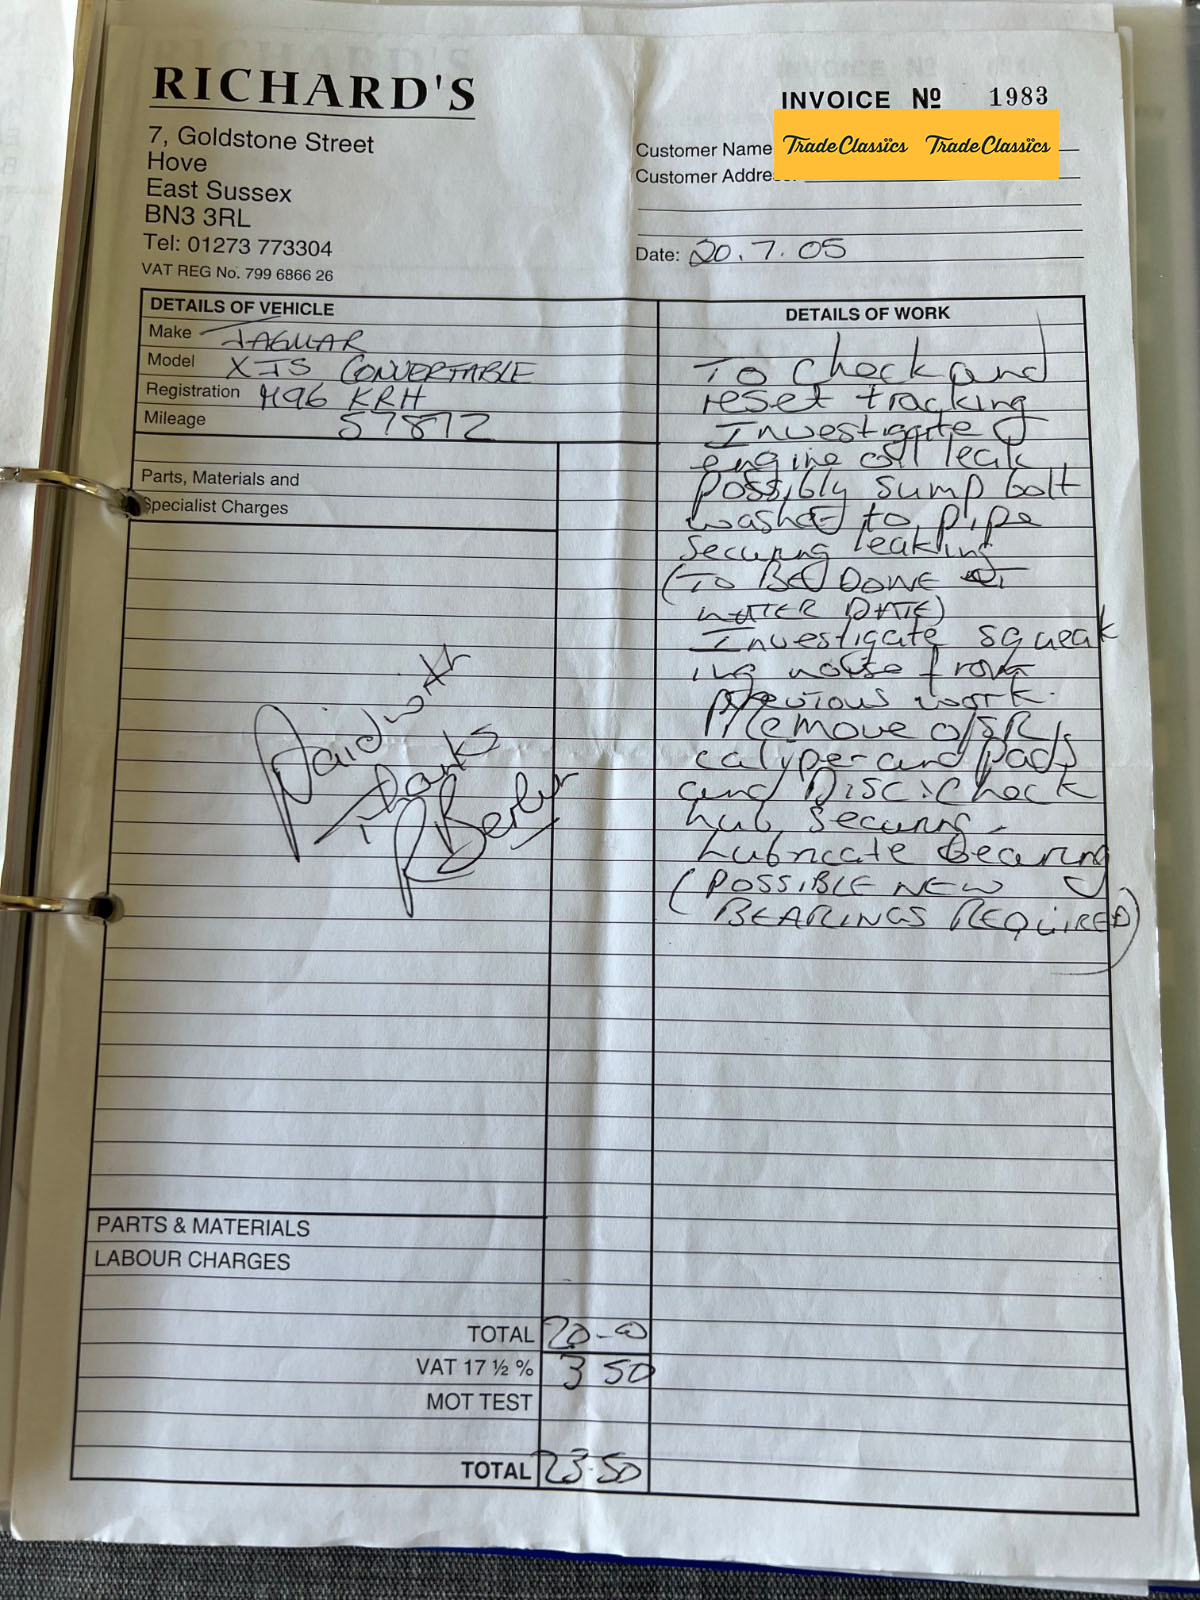 RICHARD'S
7, Goldstone Street
Hove
East Sussex
BN3 3RL
Tel: 01273 773304
VAT REG No. 799 6866 26
INVOICE Nº 1983
Customer Name TradeClassics TradeClassics
Customer Addre
Date: 20.7.05
DETAILS OF VEHICLE
Make JAGUAR
Model XJS CONVERTABLE
Registration KRH
Mileage 57872
Parts, Materials and
Specialist Charges
Paid with
thanks
PARTS & MATERIALS
LABOUR CHARGES
TOTAL 20-00
VAT 17 ½ % 3 50
MOT TEST
TOTAL 23-50
DETAILS OF WORK
To check and
reset tracking
Investigate
engine oil leak
possibly sump bolt
washer to pipe
securing leaking
(TO BE DONE AT
LATER DATE)
Investigate squeak
ing noise from
previous work.
Remove O/S/R/
calyper and pads
and Disc. Check
hub securing.
Lubricate Bearing
(POSSIBLE NEW
BEARINGS REQUIRED)